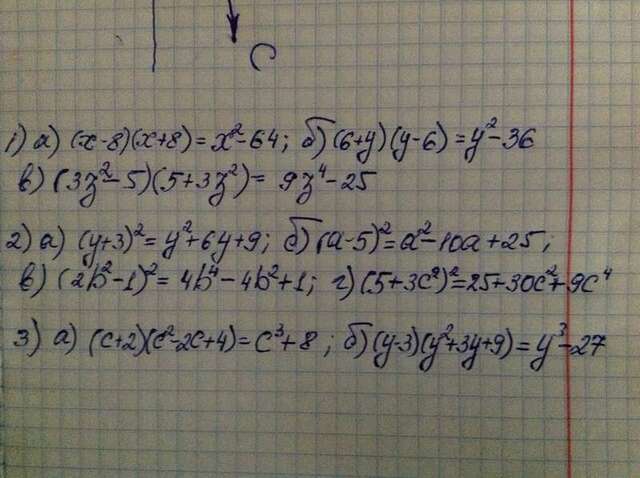 C
1) а) (x-8)(x+8) = x²-64; б) (6+y)(y-6) = y²-36
в) (3z²-5)(5+3z²) = 9z⁴-25
2) а) (y+3)² = y²+6y+9; б) (a-5)² = a²-10a+25;
в) (2b²-1)² = 4b⁴-4b²+1; г) (5+3c²)² = 25+30c²+9c⁴
3) а) (c+2)(c²-2c+4) = c³+8; б) (y-3)(y²+3y+9) = y³-27